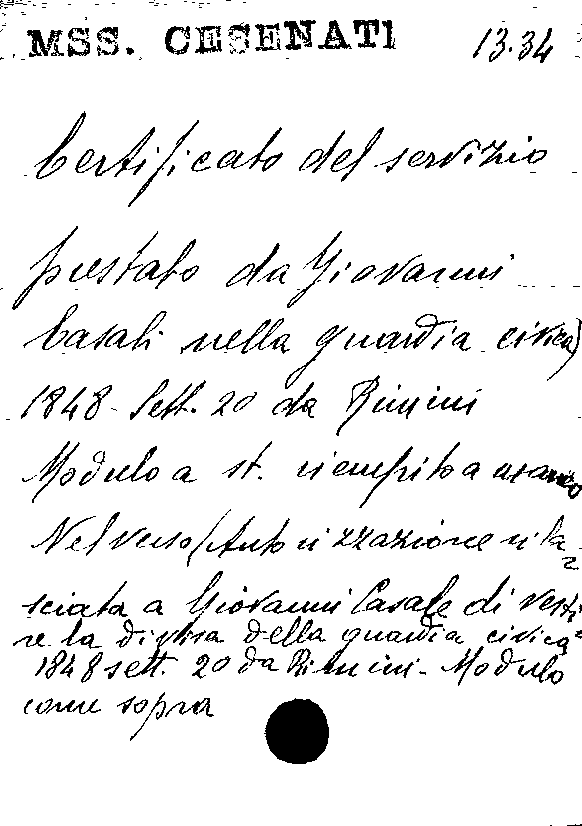 MSS. CESENATI 13.34
Certificato del servizio
prestato da Giovanni
Casali nella guardia civica)
1848 Sett. 20 da Rimini
Modulo a st. riempito a mano
Nel verso (Autorizzazione rila=
sciata a Giovanni Casale di vesti
re la divisa della guardia civica
1848 sett. 20 da Rimini - Modulo
come sopra